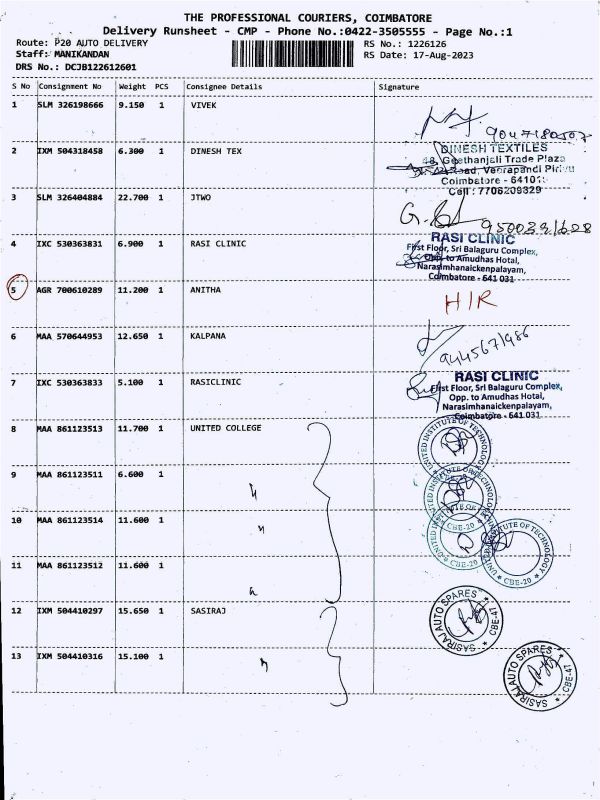 THE PROFESSIONAL COURIERS, COIMBATORE
Delivery Runsheet - CMP - Phone No.:0422-3505555 - Page No.:1
Route: P20 AUTO DELIVERY RS No.: 1226126
Staff: MANIKANDAN RS Date: 17-Aug-2023
DRS No.: DCJB122612601
S No Consignment No Weight PCS Consignee Details Signature
1 SLM 326198666 9.150 1 VIVEK
2 IXM 504318458 6.300 1 DINESH TEX
DINESH TEXTILES
Geethanjali Trade Plaza
Road, Veerapandi
Coimbatore -
Cell : 7706209329
3 SLM 326404884 22.700 1 JTWO
4 IXC 530363831 6.900 1 RASI CLINIC
RASI CLINIC
First Floor, Sri Balaguru Complex,
Opp. to Amudhas Hotal,
Narasimhanaickenpalayam,
Coimbatore - 641 031
5 AGR 700610289 11.200 1 ANITHA
H/R
6 MAA 570644953 12.650 1 KALPANA
7 IXC 530363833 5.100 1 RASICLINIC
RASI CLINIC
First Floor, Sri Balaguru Complex,
Opp. to Amudhas Hotal,
Narasimhanaickenpalayam,
Coimbatore - 641 031
8 MAA 861123513 11.700 1 UNITED COLLEGE
UNITED INSTITUTE OF TECHNOLOGY
9 MAA 861123511 6.600 1
UNITED INSTITUTE OF TECHNOLOGY
10 MAA 861123514 11.600 1
CBE-20
UNITED INSTITUTE OF TECHNOLOGY
CBE-20
11 MAA 861123512 11.600 1
CBE-20
12 IXM 504410297 15.650 1 SASIRAJ
SASIRAJ AUTO SPARES
CBE-47
13 IXM 504410316 15.100 1
SASIRAJ AUTO SPARES
CBE-47